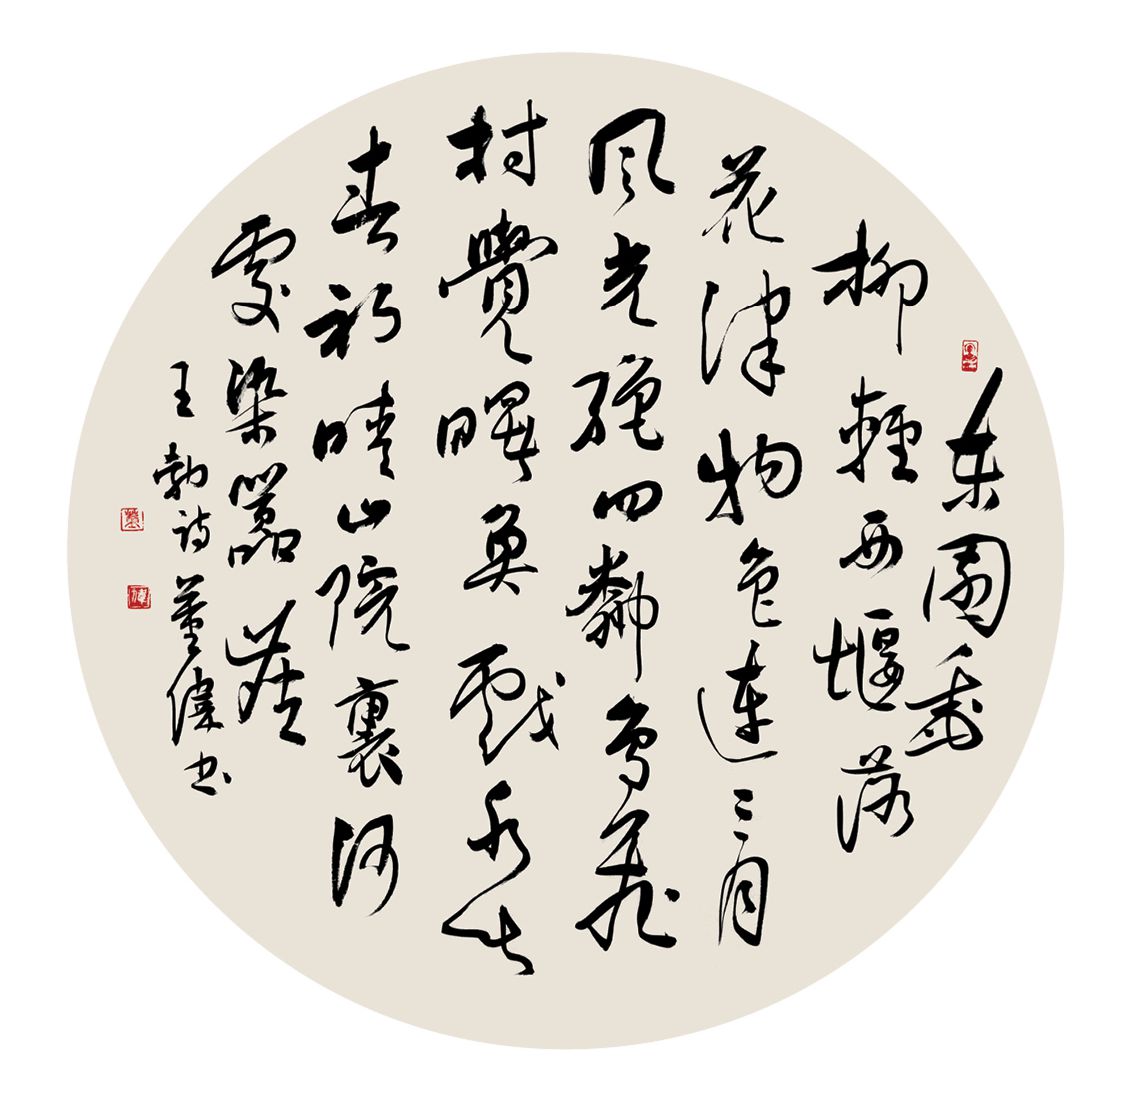 東園垂
柳輕西堰落
花津物色連三月
風光絕四鄰鳥飛
村覺曙魚戲水知
春初晴山院裏何
處染囂塵
王勃詩董偉书